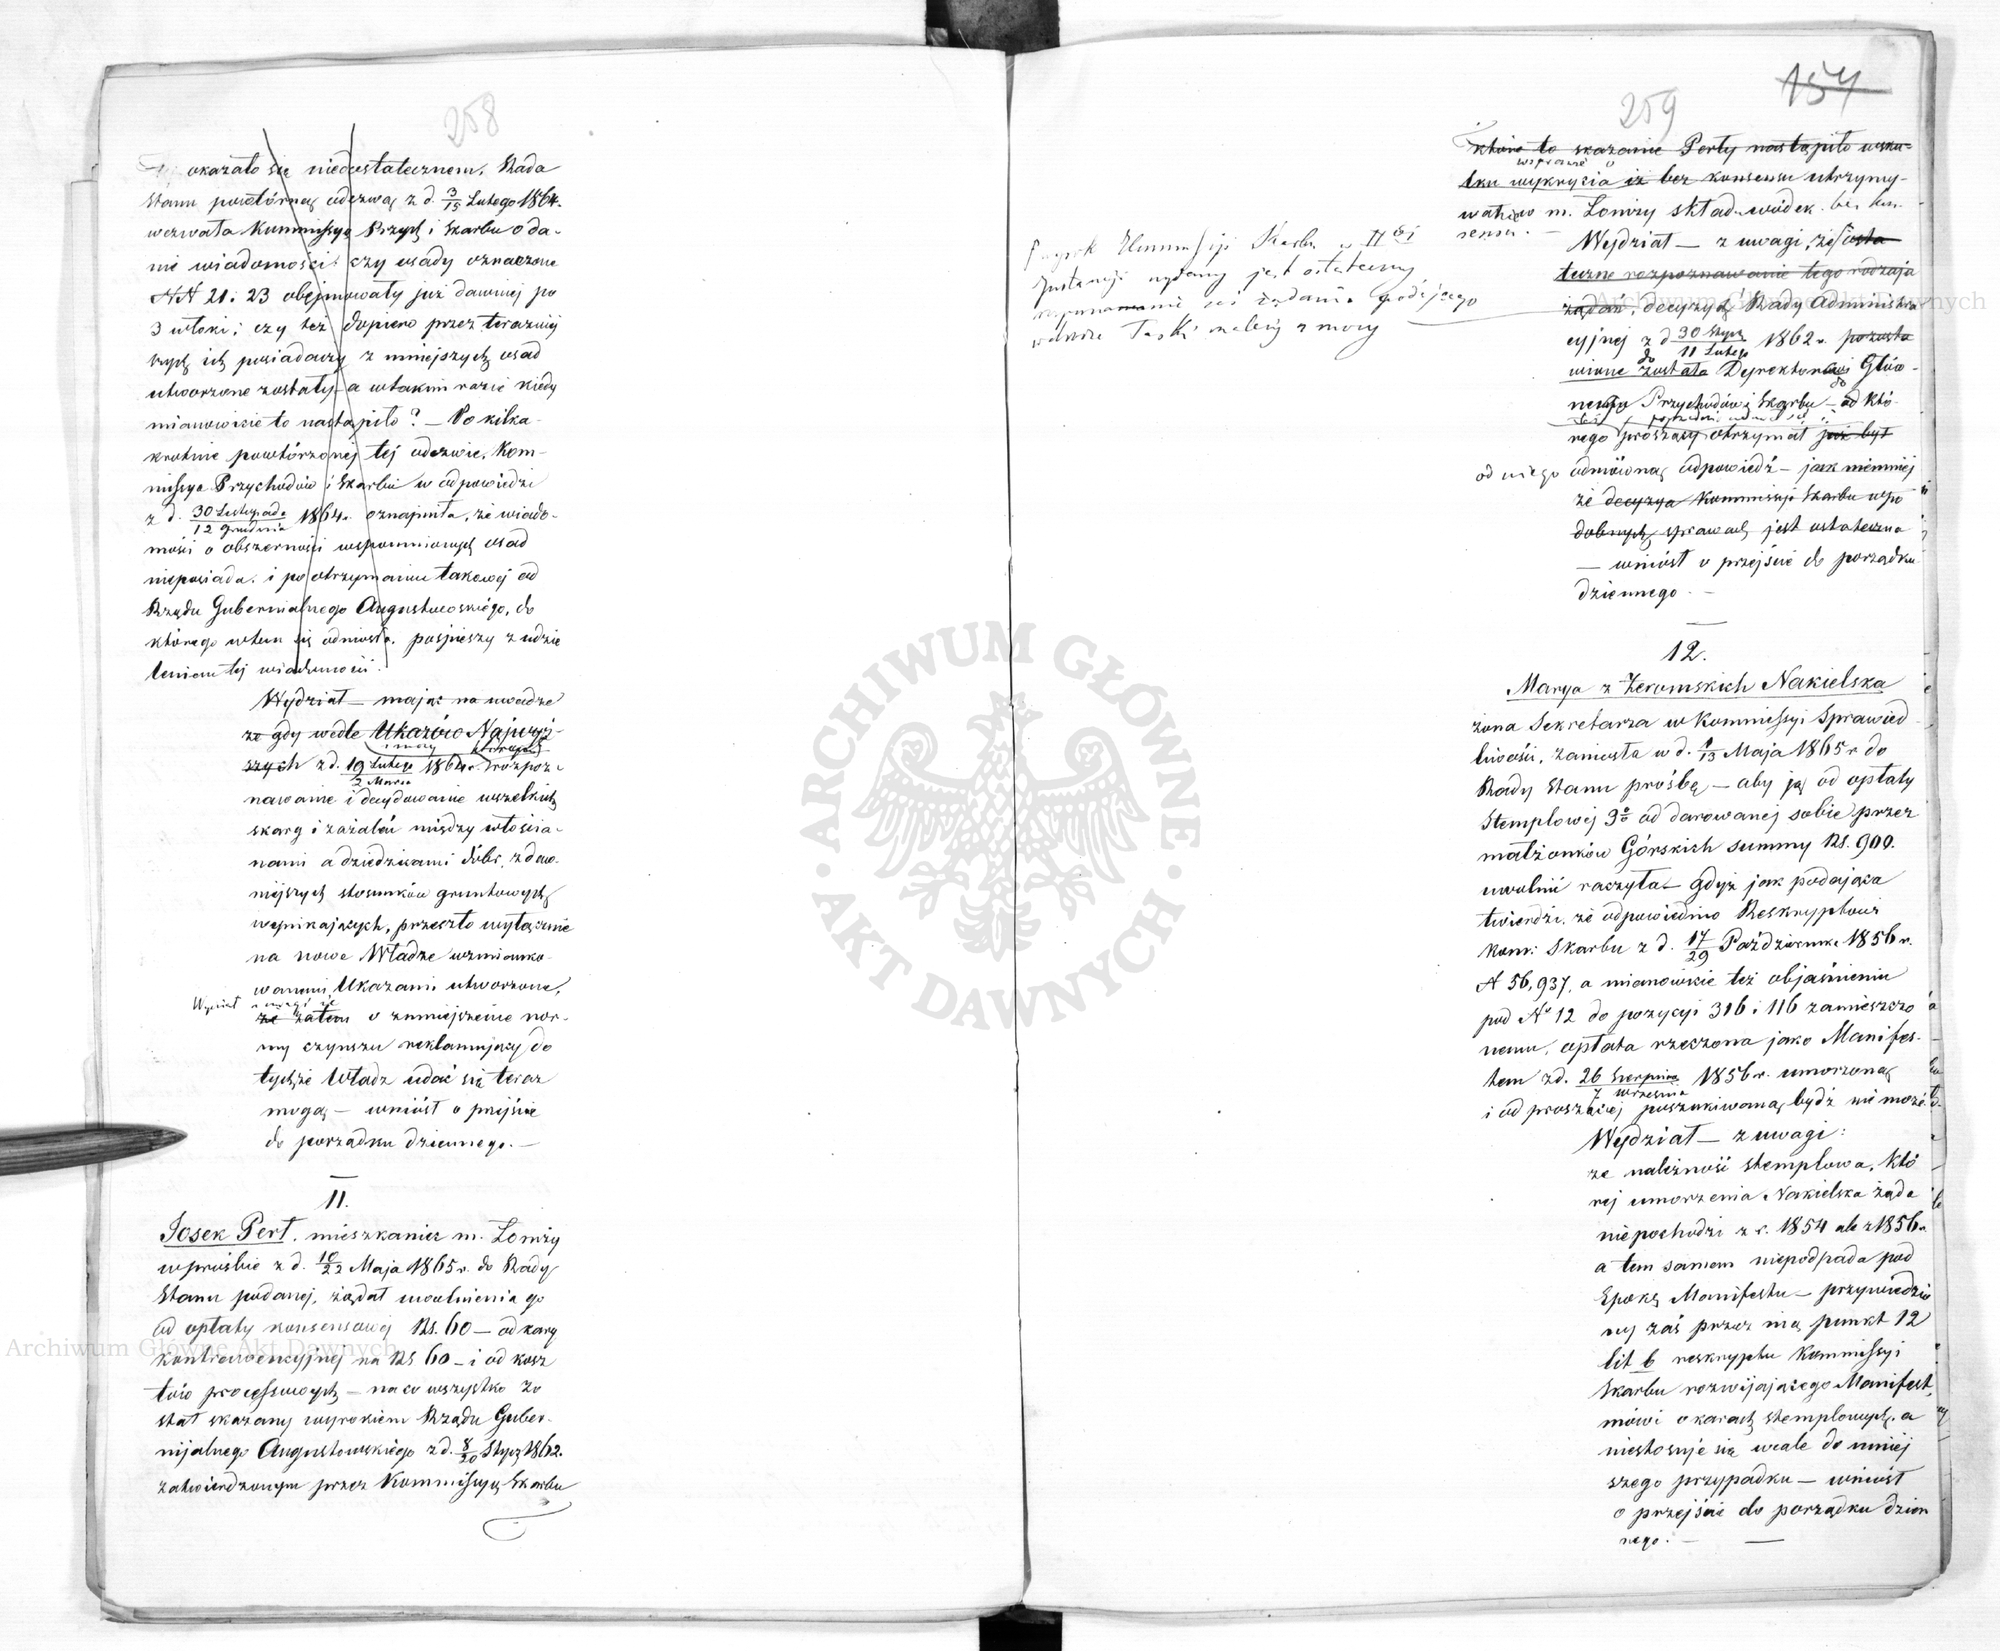 258
okazało się niedostatecznem. Rada
Stanu powtórną odezwą z d. 3/15 Lutego 1864.
wezwała Kommissyę Przych i Skarbu o da-
nie wiadomości: czy osady oznaczone
NN 21 i 23 obejmowały już dawniej po
3 włoki; czy też dopiero przez teraźniej
szych ich posiadaczy z mniejszych osad
utworzone zostały, a w takim razie kiedy
mianowicie to nastąpiło? — Po kilka-
krotnie powtórzonej tej odezwie, Kom-
missya Przychodów i Skarbu w odpowiedzi
z d. 30 Listopada/12 Grudnia 1864 r. oznajmiła, że wiado-
mości o obszerności wspomnionych osad
nieposiada, i po otrzymaniu takowej od
Rządu Gubernialnego Augustowskiego, do
którego w tem się odniosła, pospieszy z udzie
leniem tej wiadomości.
Wydział — mając na uwadze
że gdy wedle Ukazów Najwyż-
szych z d. 19 Lutego/2 Marca 1864 r. rozpoz-
nawanie i decydowanie wszelkich
skarg i zażaleń między włościa-
nami a dziedzicami dóbr, z daw-
niejszych stosunków gruntowych
wynikających, przeszło wyłącznie
na nowe Władze wzmianko-
wanemi Ukazami utworzone,
Wydział z uwagi że
że zatem o zmniejszenie nor-
my czynszu reklamujący do
tychże Władz udać się teraz
mogą — wniósł o przejście
do porządku dziennego. —
11.
Josek Pert, mieszkaniec m. Łomży
w prośbie z d. 10/22 Maja 1865 r. do Rady
Stanu podanej, żądał uwolnienia go
od opłaty konsensowej Rs. 60 — od kary
kontrawencyjnej na Rs 60 — i od kosz
tów processowych — na co wszystko zo
stał skazany wyrokiem Rządu Guber-
nijalnego Augustowskiego z d. 8/20 Stycz 1862.
zatwierdzonym przez Kommissyę Skarbu
154
259
które to skazanie Perty nastąpiło wsku-
tku wykrycia iż bez konsensu utrzymy-
wał w m. Łomży skład wódek bez kon-
sensu. —
Wydział — z uwagi, że osta
teczne rozpoznawanie tego rodzaju
żądań, decyzyą Rady Administra
cyjnej z d 30 Stycz/11 Lutego 1862 r. pozosta
wione zostało Dyrektorowi Głów-
nemu Przychodów i Skarbu — od któ-
rego proszący otrzymał już był
od niego odmówną odpowiedź — jak niemniej
że decyzya Kommissyi Skarbu w po
dobnych sprawach jest ostateczna
— wniósł o przejście do porządku
dziennego. —
12.
Marya z Żeromskich Nakielska
żona Sekretarza w Kommissyi Sprawied
liwości, zaniosła w d. 1/13 Maja 1865 r. do
Rady Stanu prośbę — aby ją od opłaty
Stemplowej 3% od darowanej sobie przez
małżonków Górskich summy Rs. 900.
uwolnić raczyła — gdyż jak podająca
twierdzi, że odpowiednio Reskryptowi
Kom: Skarbu z d. 17/29 Październ. 1856 r.
N 56,937, a mianowicie też objaśnieniu
pod No 12 do pozycyi 316 i 116 zamieszczo
nemu, opłata rzeczona jako Manifes-
tem z d. 26 Sierpnia/7 Września 1856 r. umorzoną
i od proszącej poszukiwaną bydź nie może.
Wydział — z uwagi:
że należność stemplowa, któ
rej umorzenia Nakielska żąda
nie pochodzi z r. 1854 ale z 1856 r.
a tem samem nie podpada pod
Epokę Manifestu — przywiedzio
ny zaś przez nią punkt 12
lit b reskryptu Kommissyi
Skarbu rozwijającego Manifest,
mówi o karach stemplowych, a
nie stosuje się wcale do niniej
szego przypadku — wniósł
o przejście do porządku dzien
nego. —
ARCHIWUM GŁÓWNE AKT DAWNYCH
Archiwum Główne Akt Dawnych
Archiwum Główne Akt Dawnych